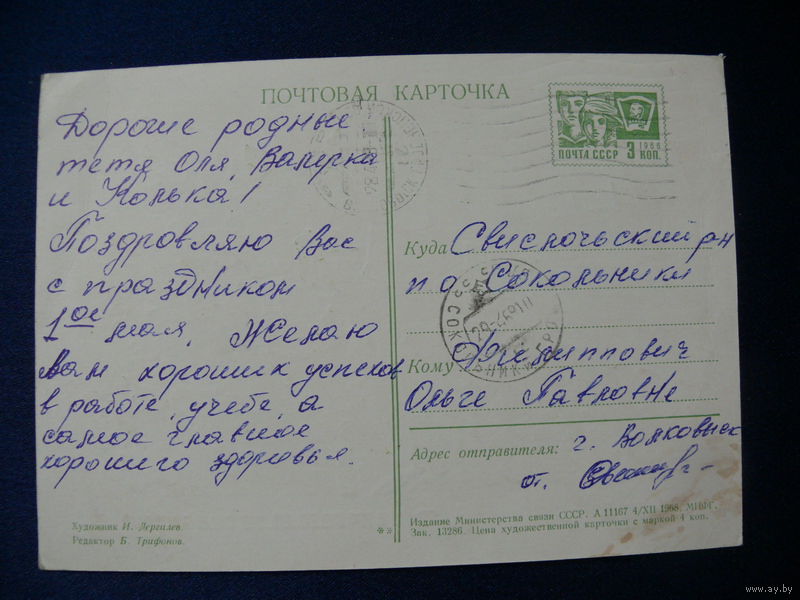 ПОЧТОВАЯ КАРТОЧКА
Дорогие родные
тетя Оля, Валерка
и Колька!
Поздровляю Вас
с праздником
1ое мая. Желаю
Вам хороших успехов
в работе, учебе, а
самое главное
хорошиго здоровья.
Художник И. Дергилев
Редактор Б. Трифонов.
1966
ПОЧТА СССР 3 КОП.
Куда Свислочьский р-н
п о Сокольники
Кому
Ольге Павловне
Адрес отправителя: г. Волковыск
от.
Издание Министерства связи СССР. А 11167 4/XII 1968. МПФГ.
Зак. 13286. Цена художественной карточки с маркой 4 коп.
www.ay.by